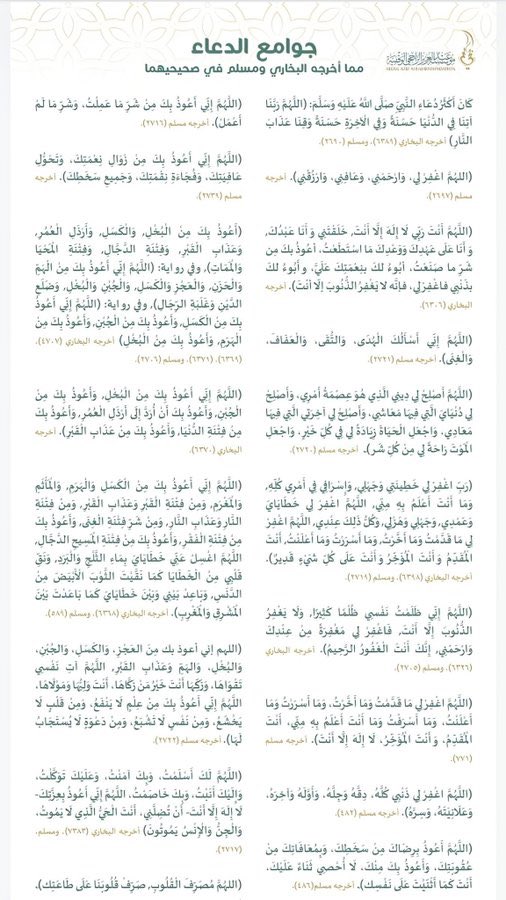 جوامع الدعاء
مما أخرجه البخاري ومسلم في صحيحيهما
كَانَ أَكْثَرُ دُعَاءِ النَّبِيِّ صَلَّى اللهُ عَلَيْهِ وَسَلَّمَ: (اللَّهُمَّ رَبَّنَا
آتِنَا فِي الدُّنْيَا حَسَنَةً وَفِي الْآخِرَةِ حَسَنَةً وَقِنَا عَذَابَ
النَّارِ) أخرجه البخاري (٦٣٨٩)، ومسلم (٢٦٩٠).
(اللهُمَّ اغْفِرْ لِي، وَارْحَمْنِي، وَعَافِنِي، وَارْزُقْنِي). أخرجه
مسلم (٢٦٩٧)
(اللَّهُمَّ أَنْتَ رَبِّي لَا إِلَهَ إِلَّا أَنْتَ, خَلَقْتَنِي وَأَنَا عَبْدُكَ,
وَأَنَا عَلَى عَهْدِكَ وَوَعْدِكَ مَا اسْتَطَعْتُ, أَعُوذُ بِكَ مِن
شَرِّ ما صَنَعْتُ، أَبُوءُ لَكَ بِنِعْمَتِكَ عَلَيَّ، وَ أَبُوءُ لكَ
بِذَنْبِي فاغْفِرْ لِي، فإنَّه لا يَغْفِرُ الذُّنُوبَ إلَّا أنْتَ). أخرجه البخاري
(٦٣٠٦)
(اللَّهُمَّ إِنِّي أَسْأَلُكَ الْهُدَى، وَالتُّقَى، وَالْعَفَافَ،
وَالْغِنَى). أخرجه مسلم (٢٧٢١)
(اللَّهُمَّ أَصْلِحْ لِي دِينِي الَّذِي هُوَ عِصْمَةُ أَمْرِي، وَأَصْلِحْ
لِي دُنْيَايَ الَّتِي فِيهَا مَعَاشِي، وَأَصْلِحْ لِي آخِرَتِي الَّتِي فِيهَا
مَعَادِي، وَاجْعَلِ الْحَيَاةَ زِيَادَةً لِي فِي كُلِّ خَيْرٍ، وَاجْعَلِ
الْمَوْتَ رَاحَةً لِي مِنْ كُلِّ شَرٍّ). أخرجه مسلم (٢٧٢٠)
(رَبِّ اغْفِرْ لِي خَطِيئَتِي وَجَهْلِي، وَإِسْرَافِي فِي أَمْرِي كُلِّهِ,
وَمَا أَنْتَ أَعْلَمُ بِهِ مِنِّي, اللَّهُمَّ اغْفِرْ لِي خَطَايَايَ
وَعَمْدِي، وَجَهْلِي وَهَزْلِي، وَكُلُّ ذَلِكَ عِنْدِي, اللَّهُمَّ اغْفِرْ
لِي مَا قَدَّمْتُ وَمَا أَخَّرْتُ، وَمَا أَسْرَرْتُ وَمَا أَعْلَنْتُ, أَنْتَ
الْمُقَدِّمُ وَأَنْتَ الْمُؤَخِّرُ وَأَنْتَ عَلَى كُلِّ شَيْءٍ قَدِيرٌ).
أخرجه البخاري (٦٣٩٨)، ومسلم (٢٧١٩)
(اللَّهُمَّ إِنِّي ظَلَمْتُ نَفْسِي ظُلْمًا كَثِيرًا، وَلَا يَغْفِرُ
الذُّنُوبَ إِلَّا أَنْتَ, فَاغْفِرْ لِي مَغْفِرَةً مِنْ عِنْدِكَ
وَارْحَمْنِي, إِنَّكَ أَنْتَ الْغَفُورُ الرَّحِيمُ). أخرجه البخاري
(٦٣٢٦)، ومسلم (٢٧٠٥)
(اللهُمَّ اغْفِرْ لِي مَا قَدَّمْتُ وَمَا أَخَّرْتُ، وَمَا أَسْرَرْتُ وَمَا
أَعْلَنْتُ، وَمَا أَسْرَفْتُ وَمَا أَنْتَ أَعْلَمُ بِهِ مِنِّي، أَنْتَ
الْمُقَدِّمُ، وَأَنْتَ الْمُؤَخِّرُ، لَا إِلَهَ إِلَّا أَنْتَ). أخرجه مسلم
(٧٧١)
(اللَّهُمَّ اغْفِرْ لِي ذَنْبِي كُلَّهُ، دِقَّهُ وَجِلَّهُ، وَأَوَّلَهُ وَآخِرَهُ،
وَعَلَانِيَتَهُ، وَسِرَّهُ). أخرجه مسلم (٤٨٣)
(اللَّهُمَّ أَعُوذُ بِرِضَاكَ مِنْ سَخَطِكَ، وَبِمُعَافَاتِكَ مِنْ
عُقُوبَتِكَ، وَأَعُوذُ بِكَ مِنْكَ، لَا أُحْصِي ثَنَاءً عَلَيْكَ،
أَنْتَ كَمَا أَثْنَيْتَ عَلَى نَفْسِكَ). أخرجه مسلم (٤٨٦)
(اللَّهُمَّ إِنِّي أَعُوذُ بِكَ مِنْ شَرِّ مَا عَمِلْتُ، وَشَرِّ مَا لَمْ
أَعْمَلْ). أخرجه مسلم (٢٧١٦)
(اللَّهُمَّ إِنِّي أَعُوذُ بِكَ مِنْ زَوَالِ نِعْمَتِكَ، وَتَحَوُّلِ
عَافِيَتِكَ، وَفُجَاءَةِ نِقْمَتِكَ، وَجَمِيعِ سَخَطِكَ). أخرجه
مسلم (٢٧٣٩)
(أَعُوذُ بِكَ مِنَ الْبُخْلِ, وَالْكَسَلِ، وَأَرْذَلِ الْعُمُرِ,
وَعَذَابِ الْقَبْرِ, وَفِتْنَةِ الدَّجَّالِ, وَفِتْنَةِ الْمَحْيَا
وَالْمَمَاتِ), وفي رواية: (اللَّهُمَّ إِنِّي أَعُوذُ بِكَ مِنَ الْهَمِّ
وَالْحَزَنِ, وَالْعَجْزِ وَالْكَسَلِ، وَالْجُبْنِ وَالْبُخْلِ, وَضَلَعِ
الدَّيْنِ وَغَلَبَةِ الرِّجَالِ), وفي رواية: (اللَّهُمَّ إِنِّي أَعُوذُ
بِكَ مِنَ الْكَسَلِ, وَأَعُوذُ بِكَ مِنَ الْجُبْنِ, وَأَعُوذُ بِكَ مِنَ
الْهَرَمِ, وَأَعُوذُ بِكَ مِنَ الْبُخْلِ) أخرجه البخاري (٤٧٠٧)،
(٦٣٦٩)، (٦٣٧١)، ومسلم (٢٧٠٦)
(اللَّهُمَّ إِنِّي أَعُوذُ بِكَ مِنَ الْبُخْلِ, وَأَعُوذُ بِكَ مِنَ
الْجُبْنِ, وَأَعُوذُ بِكَ أَنْ أُرَدَّ إِلَى أَرْذَلِ الْعُمُرِ, وَأَعُوذُ بِكَ
مِنْ فِتْنَةِ الدُّنْيَا, وَأَعُوذُ بِكَ مِنْ عَذَابِ الْقَبْرِ). أخرجه
البخاري (٦٣٧٠)
(اللَّهُمَّ إِنِّي أَعُوذُ بِكَ مِنَ الْكَسَلِ وَالْهَرَمِ, وَالْمَأْثَمِ
وَالْمَغْرَمِ, وَمِنْ فِتْنَةِ الْقَبْرِ وَعَذَابِ الْقَبْرِ, وَمِنْ فِتْنَةِ
النَّارِ وَعَذَابِ النَّارِ, وَمِنْ شَرِّ فِتْنَةِ الْغِنَى, وَأَعُوذُ بِكَ
مِنْ فِتْنَةِ الْفَقْرِ, وَأَعُوذُ بِكَ مِنْ فِتْنَةِ الْمَسِيحِ الدَّجَّالِ,
اللَّهُمَّ اغْسِلْ عَنِّي خَطَايَايَ بِمَاءِ الثَّلْجِ وَالْبَرَدِ, وَنَقِّ
قَلْبِي مِنَ الْخَطَايَا كَمَا نَقَّيْتَ الثَّوْبَ الْأَبْيَضَ مِنَ
الدَّنَسِ, وَبَاعِدْ بَيْنِي وَبَيْنَ خَطَايَايَ كَمَا بَاعَدْتَ بَيْنَ
الْمَشْرِقِ وَالْمَغْرِبِ). أخرجه البخاري (٦٣٦٨)، ومسلم (٥٨٩)
(اللهم إني أعوذ بك مِنَ الْعَجْزِ، وَالْكَسَلِ، وَالْجُبْنِ،
وَالْبُخْلِ، وَالْهَمِّ وَعَذَابِ الْقَبْرِ, اللَّهُمَّ آتِ نَفْسِي
تَقْوَاهَا، وَزَكِّهَا أَنْتَ خَيْرُ مَنْ زَكَّاهَا، أَنْتَ وَلِيُّهَا وَمَوْلَاهَا،
اللَّهُمَّ إِنِّي أَعُوذُ بِكَ مِنْ عِلْمٍ لَا يَنْفَعُ، وَمِنْ قَلْبٍ لَا
يَخْشَعُ، وَمِنْ نَفْسٍ لَا تَشْبَعُ، وَمِنْ دَعْوَةٍ لَا يُسْتَجَابُ
لَهَا). أخرجه مسلم (٢٧٢٢)
(اللَّهُمَّ لَكَ أَسْلَمْتُ، وَبِكَ آمَنْتُ، وَعَلَيْكَ تَوَكَّلْتُ،
وَإِلَيْكَ أَنَبْتُ، وَبِكَ خَاصَمْتُ، اللَّهُمَّ إِنِّي أَعُوذُ بِعِزَّتِكَ-
لَا إِلَهَ إِلَّا أَنْتَ- أَنْ تُضِلَّنِي، أَنْتَ الْحَيُّ الَّذِي لَا يَمُوتُ،
وَالْجِنُّ وَالْإِنْسُ يَمُوتُونَ) أخرجه البخاري (٧٣٨٣)، ومسلم،
(٢٧١٧)
(اللهُمَّ مُصَرِّفَ الْقُلُوبِ, صَرِّفْ قُلُوبَنَا عَلَى طَاعَتِكَ).